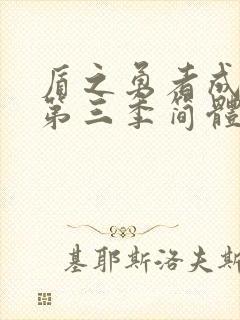 盾之勇者成
第三季简體
基耶斯洛夫斯